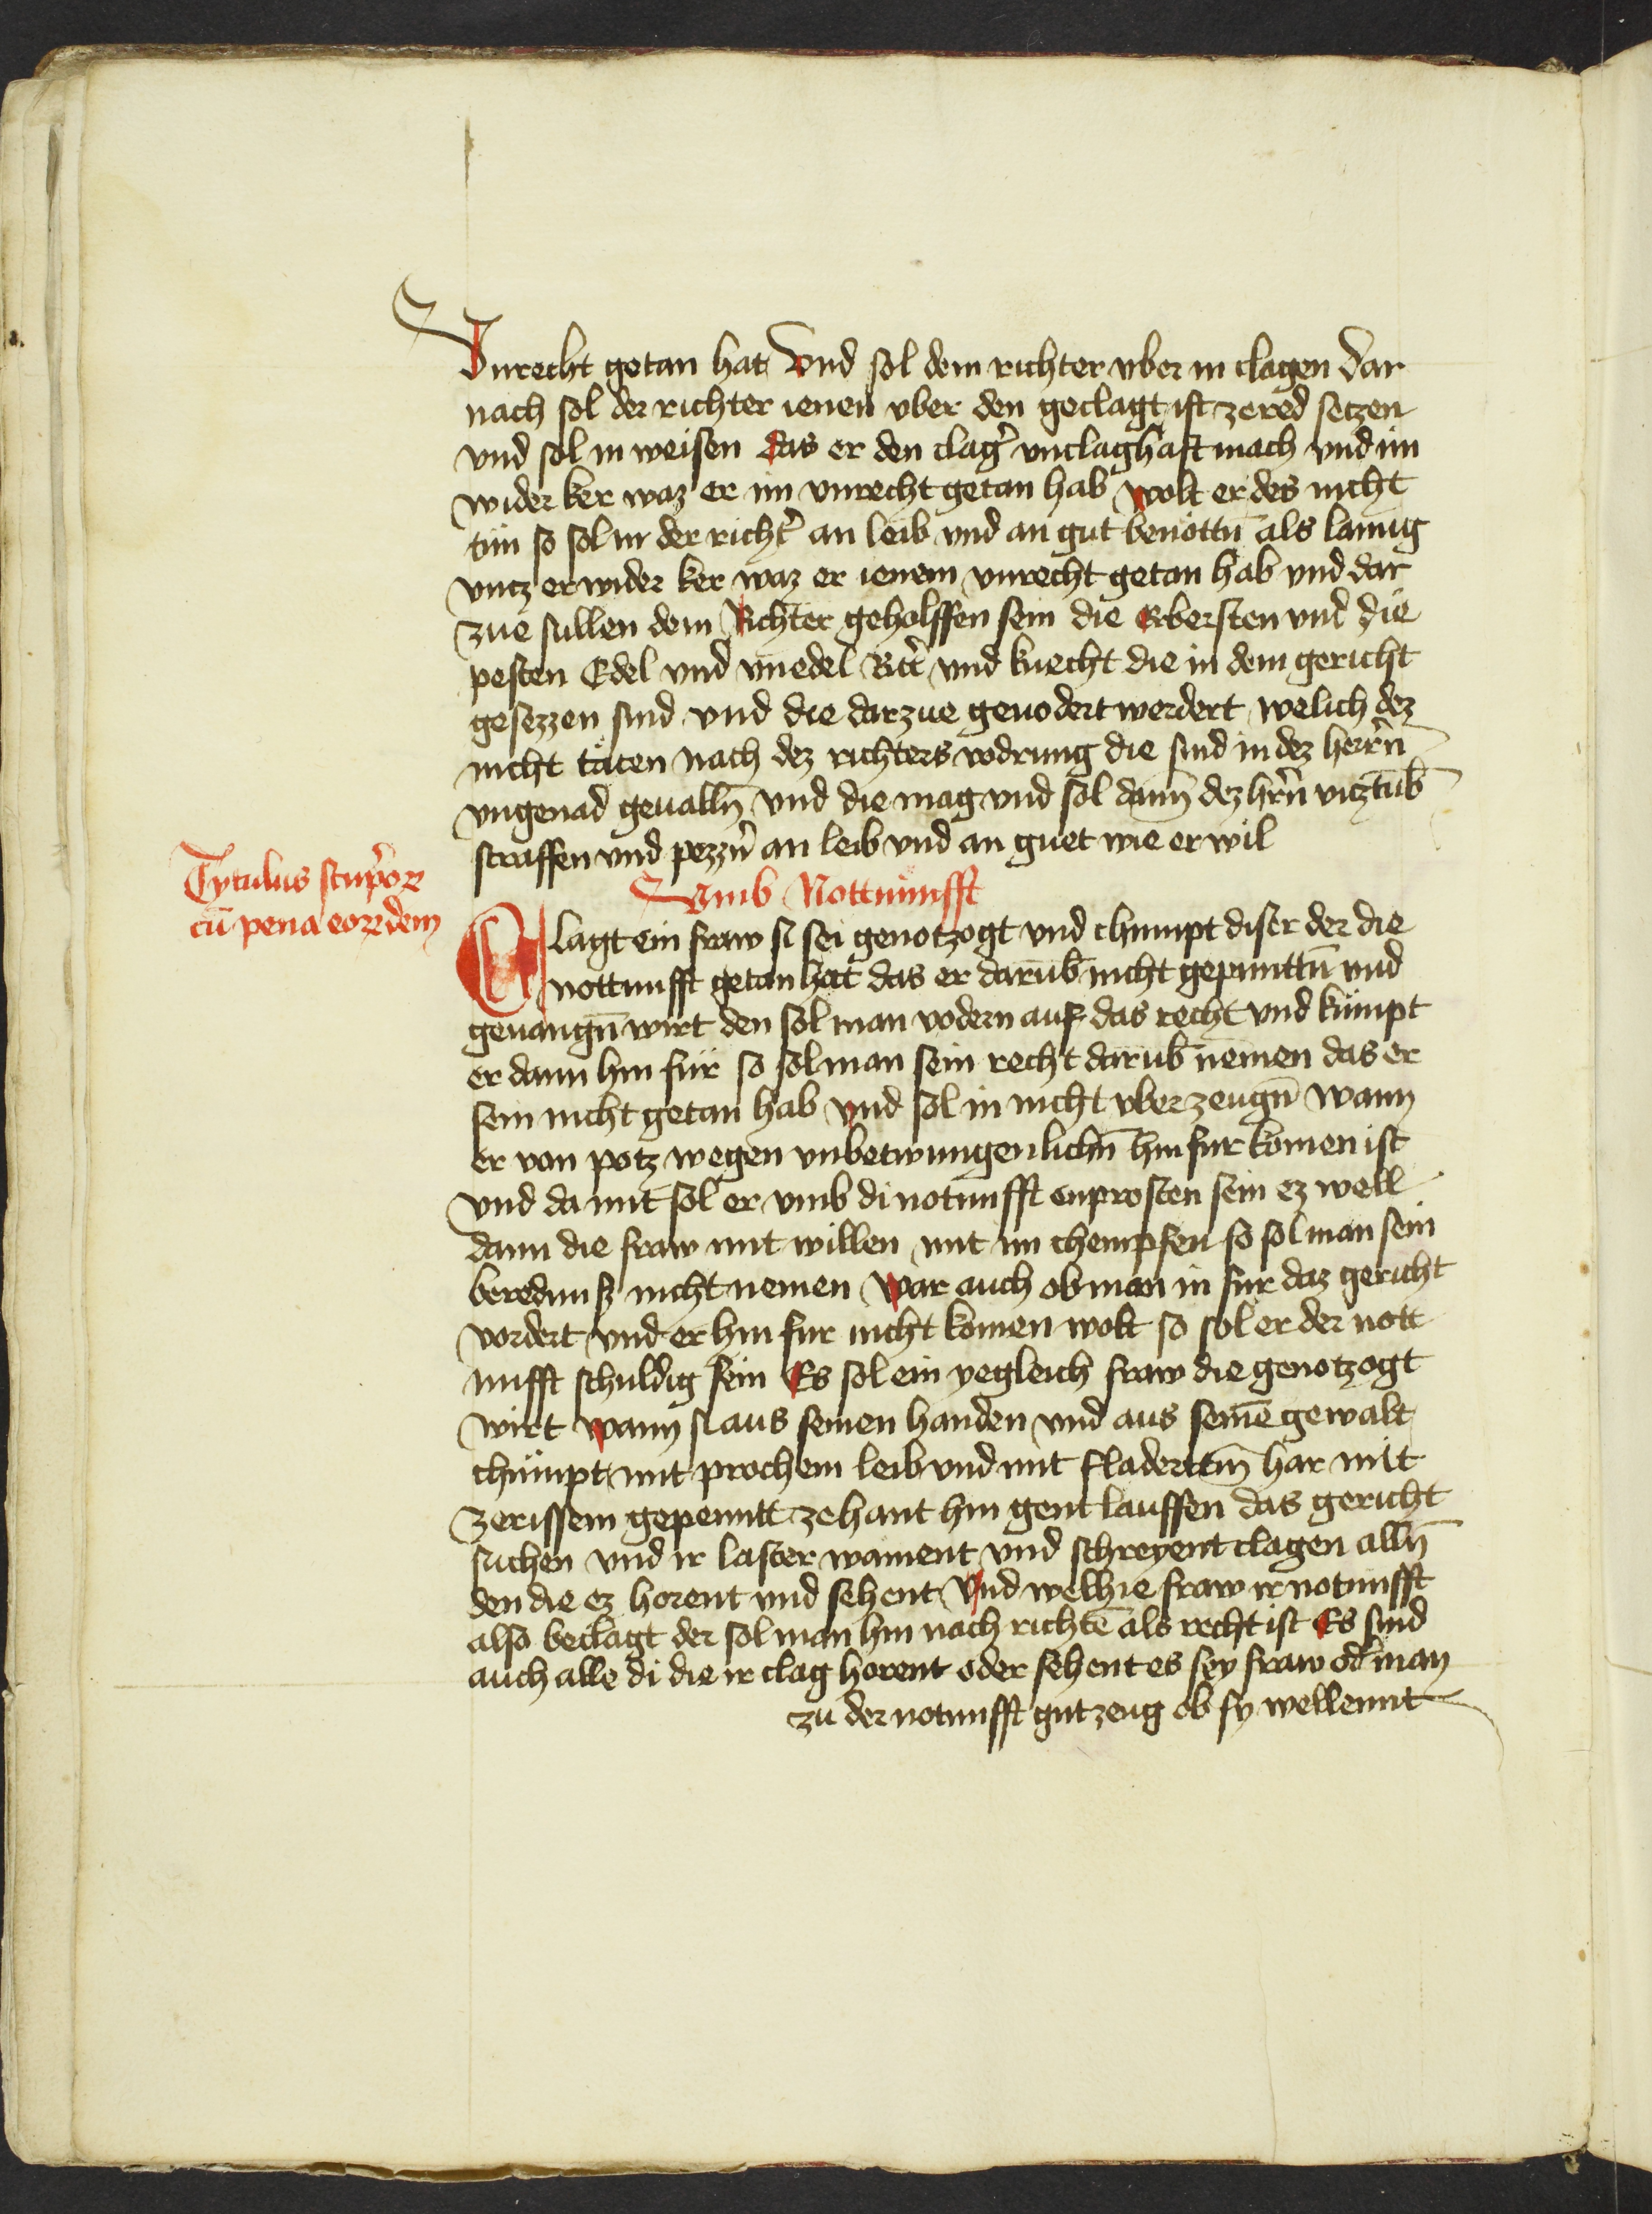 Vnrecht getan hat Vnd sol dem richter vber in clagen dar
nach sol der richter ienen vber den geclagt ist ze red setzen
vnd sol in weisen das er den clag̉ vnclaghaft mach vnd im
wider ker waz er im vnrecht getan hab wolt er des nicht
tün so sol in der richt̉ an leib vnd an gut benöttn̄ als lanng
vncz er wider ker waz er ienem vnrecht getan hab vnd dar
zue sullen dem Richter geholffen sein die Erbersten vnd die
pesten Edel vnd vnedel Ritt̉ vnd knecht die in dem gericht
gesezzen sind vnd die darzue geuodert werdert welich dez
nicht täten nach dez richters vodrung die sind in dez herr̉n
vngenad geualln̄ vnd die mag vnd sol dann dez hr̉n vicztūb
straffen vnd pezzn̉ an leib vnd an guet wie er wil
Tytulus stup̉oꝝ
cū pena eoꝝdem
Vmb Nottnünfft
Clagt ein fraw si sei genotzogt vnd chumpt diser der die
nottnufft getan hat das er darūb nicht gepunttn̄ vnd
geuangn̄ wirt den sol man vodern auf das recht vnd kümpt
er dann hin für so sol man sein recht darūb nemen das er
sein nicht getan hab vnd sol in nicht vberzeugn̄ wann
er von potz wegen vnbetwungenlichn̄ hinfur komen ist
vnd da mit sol er vmb di notnufft enprosten sein ez well
dann die fraw mit willen mit im chempfen so sol man sein
beredunß nicht nemen war auch ob man in fur daz gericht
vordert vnd er hin fur nicht komen wolt so sol er der nott
nufft schuldig sein Es sol ein yegleich fraw die genotzogt
wirt wann si aus seinen handen vnd aus seinē gewalt
chümpt mit prochem leib vnd mit fladerttm̄ har mit
zerissem gepenntt zehant hin gent lauffen das gericht
suchen vnd ir laster wainent vnd schreyent clagen alln̄
den die ez horent vnd sehent Vnd welhie fraw ir notnufft
also beclagt der sol man hin nach richtē als recht ist Es sind
auch alle di die ir clag horent oder sehent es sey fraw od̉ man
zu der notnufft gut zeug ob sy wellennt